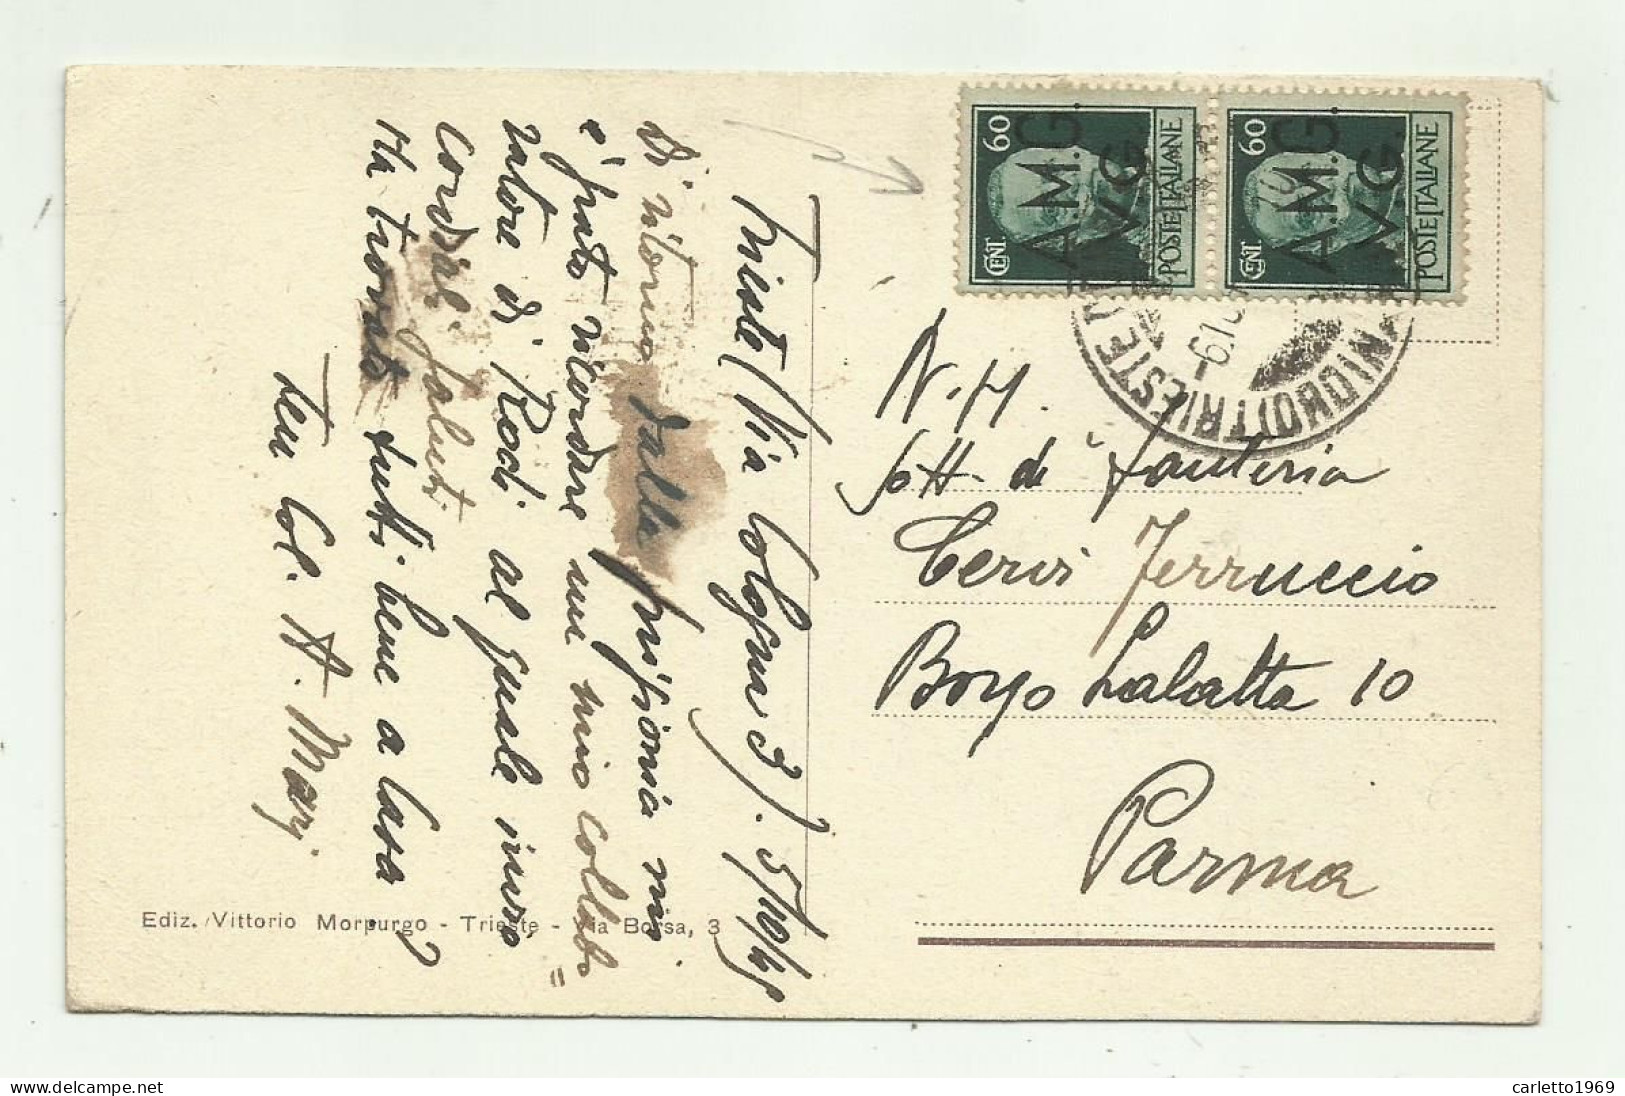 Trieste (Via Bologna 3). 5/10/45
Di ritorno dalla prigionia mi
è grato ricordare un mio collabo=
ratore di Rodi al quale invio
cordiali saluti.
Ha trovato tutti bene a casa?
Ten Col. A. Mari
Ediz. Vittorio Morpurgo - Trieste - Via Borsa, 3
CENT. 60
POSTE ITALIANE
A.M.G.
V.G.
CENT. 60
POSTE ITALIANE
A.M.G.
V.G.
TRIESTE
-6.10
N.H.
sott. di fanteria
Cervi Ferruccio
Borgo Lalatta 10
Parma
carletto1969